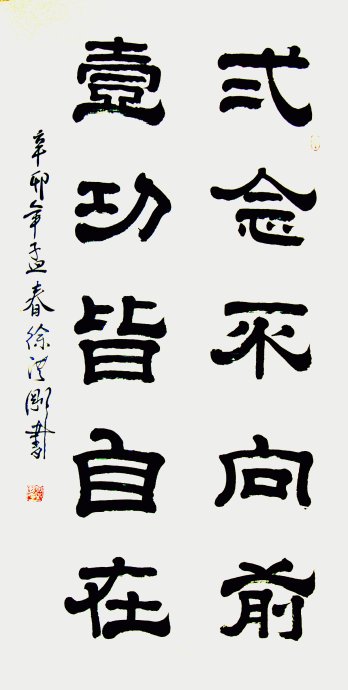 弍念不向前
壹切皆自在
辛卯年孟春徐洪剛書